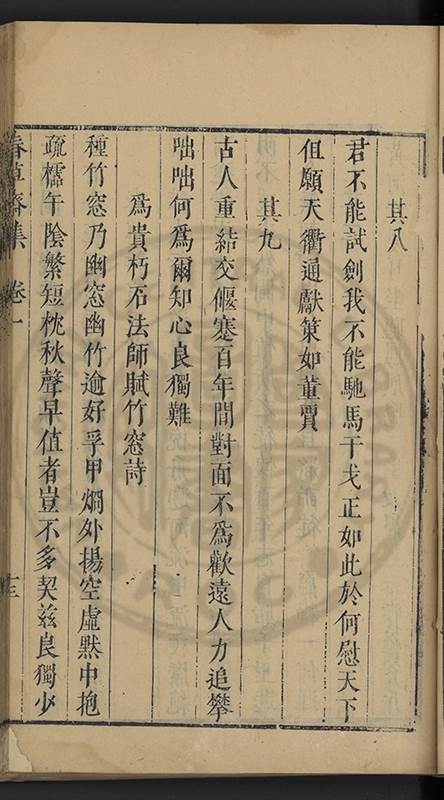 其八
君不能試劍我不能馳馬干戈正如此於何慰天下
但願天衢通獻策如董賈
其九
古人重結交偃蹇百年間對面不為歡遠人力追攀
咄咄何為爾知心良獨難
為貴朽石法師賦竹窓詩
種竹窓乃幽窓幽竹逾好孚甲烱外揚空虛黙中抱
疏櫺午陰繁短枕秋聲早值者豈不多契茲良獨少
春草齋集 卷一 十三